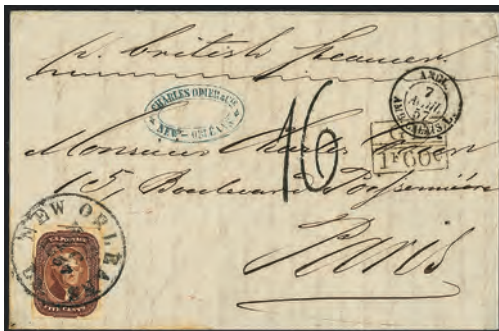 p. british steamer.
CHARLES ODIER & CIE
NEW-ORLEANS
ANGL.
7
AVRIL
57
AMB. CALAIS
1F60C
16
Monsieur Charles
15, Boulevard Poissonnière
Paris
NEW ORLEANS
U.S. POSTAGE
FIVE CENTS